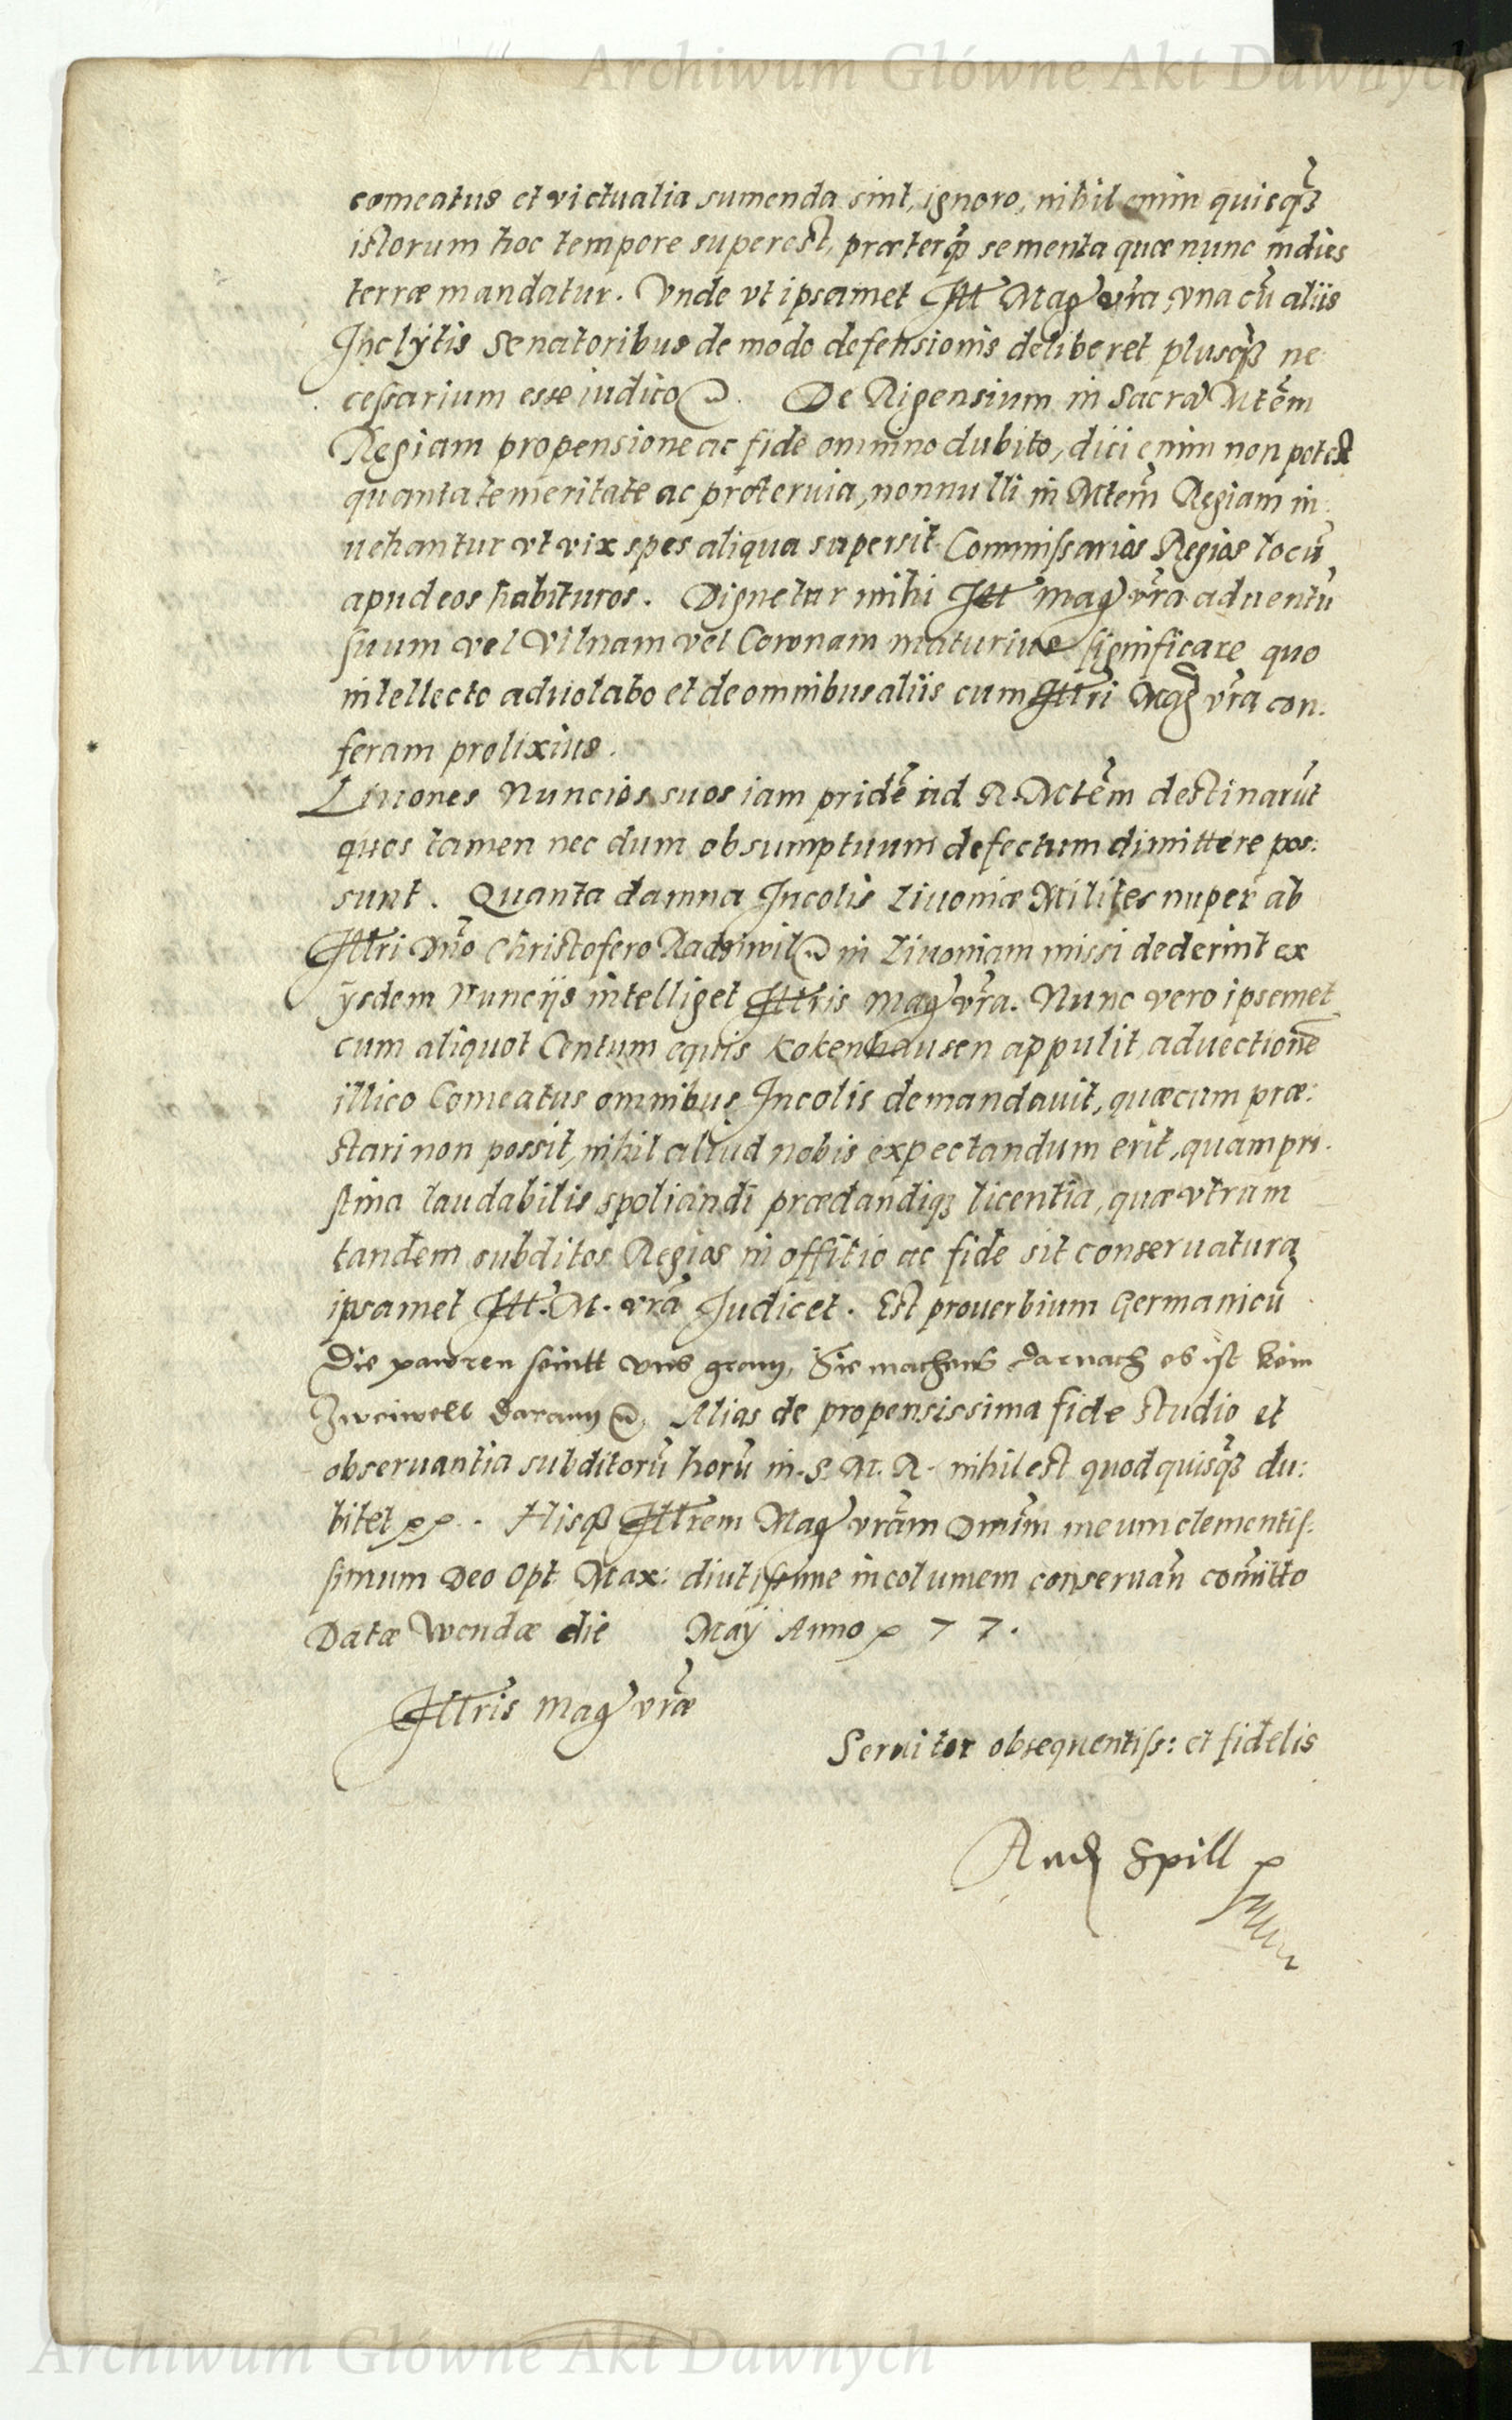 Archiwum Główne Akt Dawnych
comeatus et victualia sumenda sint, ignoro, nihil enim quicq̃ȝ
istorum hoc tempore superest, præterq̃ sementa quæ nunc indies
terræ mandatur. Vnde vt ipsamet Ill Mag vr̃a, vna cũ aliis
Inclÿtis Senatoribus de modo defensionis deliberet plusq̃ȝ ne
cessarium esse iudico. De Rigensium in Sacrã Mtẽm
Regiam propensione ac fide omnino dubito, dici enim non potest
quanta temeritate ac proteruia, nonnulli in Mtẽm Regiam in:
uehantur vt vix spes aliqua supersit Commissarios Regios locũ
apud eos habituros. Dignetur mihi Ill mag vr̃a aduentũ
suum vel Vilnam vel Cownam maturius significare quo
intellecto aduolabo et de omnibus aliis cum Illri Mag vr̃a con.
feram prolixius.
Liuones Nuncios suos iam pridẽ ad R. Mtẽm destinarũt
quos tamen nec dum ob sumptuum defectum dimittere pos:
sunt. Quanta damna Incolis Liuoniæ Milites nuper ab
Illri Dnõ Christofero Radziwil in Liuoniam missi dederint ex
ÿsdem Nuncÿs intelliget Illris mag vr̃a. Nunc vero ipsemet
cum aliquot Centum equis Kokenhausen appulit, aduectionẽ
illico Comeatus omnibus Incolis demandauit, quæ cum præ:
stari non possit, nihil aliud nobis expectandum erit, quam pri.
stina laudabilis spoliandi prædandiqȝ licentia, quæ vtrum
tandem subditos Regios in offitio ac fide sit conseruatura
ipsamet Ill. M. vr̃a Judicet. Est prouerbium Germanicũ
Die pawren seintt vns gram, Sie machens darnach es ist kein
Zweiwell daran. Alias de propensissima fide studio et
obseruantia subditorũ horũ in. S. M. R. nihil est quod quisq̃ȝ du:
bitet pp. Hisqȝ Illrem Mag vrãm Dnũm meum clementis-
simum Deo Opt Max: diutissime incolumem conseruañ com̃itto
Datæ Wendæ die May Anno p 77.
Illris mag vr̃æ
Seruitor obsequentiss: et fidelis
And Spill
Archiwum Główne Akt Dawnych